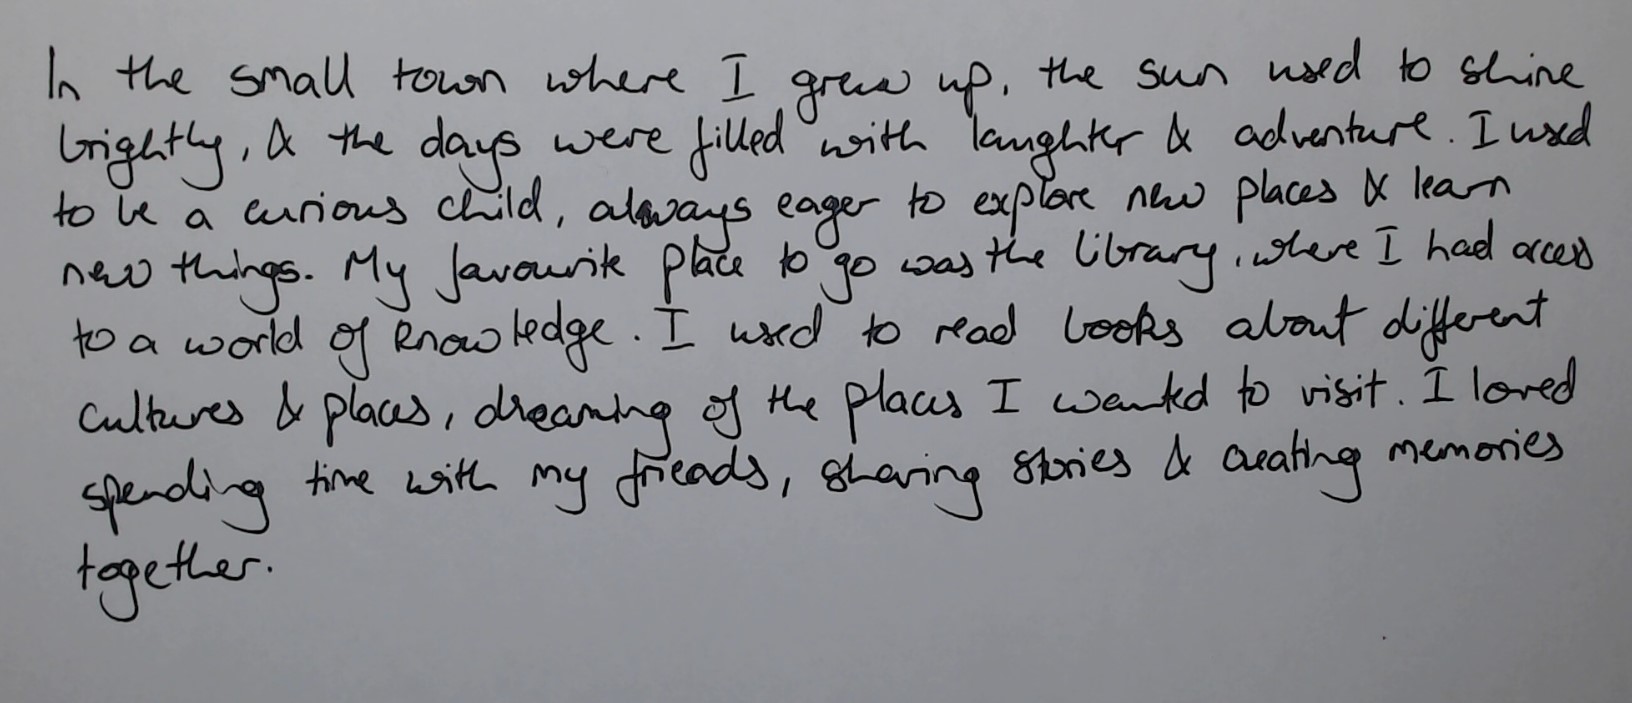 In the small town where I grew up, the sun used to shine
brightly, & the days were filled with laughter & adventure. I used
to be a curious child, always eager to explore new places & learn
new things. My favourite place to go was the library, where I had access
to a world of knowledge. I used to read books about different
cultures & places, dreaming of the places I wanted to visit. I loved
spending time with my friends, sharing stories & creating memories
together.